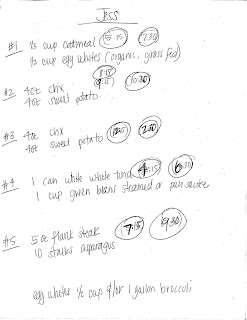 Jess
#1 ½ cup oatmeal 5:15 7:30
½ cup egg whites (organic, grass fed)
8:15
#2 4oz chx 10:30
4oz sweet potato
#3 4oz chx 2:00
4oz sweet potato
#4 1 can white whole tuna 4:15 6:30
1 cup green beans steamed or pan saute
#5 5 oz flank steak 7:15 9:30
10 stalks asparagus
egg whites ½ cup &/or 1 gallon broccoli